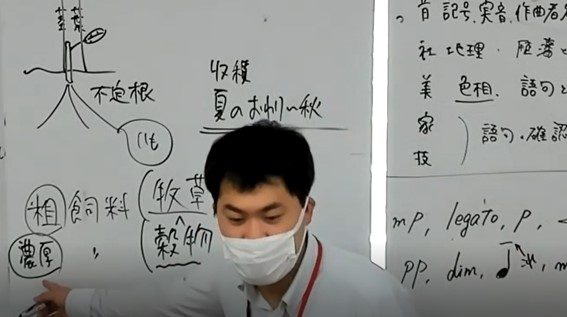 茎 葉
不定根
いも
収穫
夏のおわり〜秋
粗飼料(牧草
濃厚 〃 (穀物
音 記号、実音、作曲者名
社 地理・
美 色相、語句と
家
技
語句・確認
mp, legato, p, <
pp, dim, ♩, m